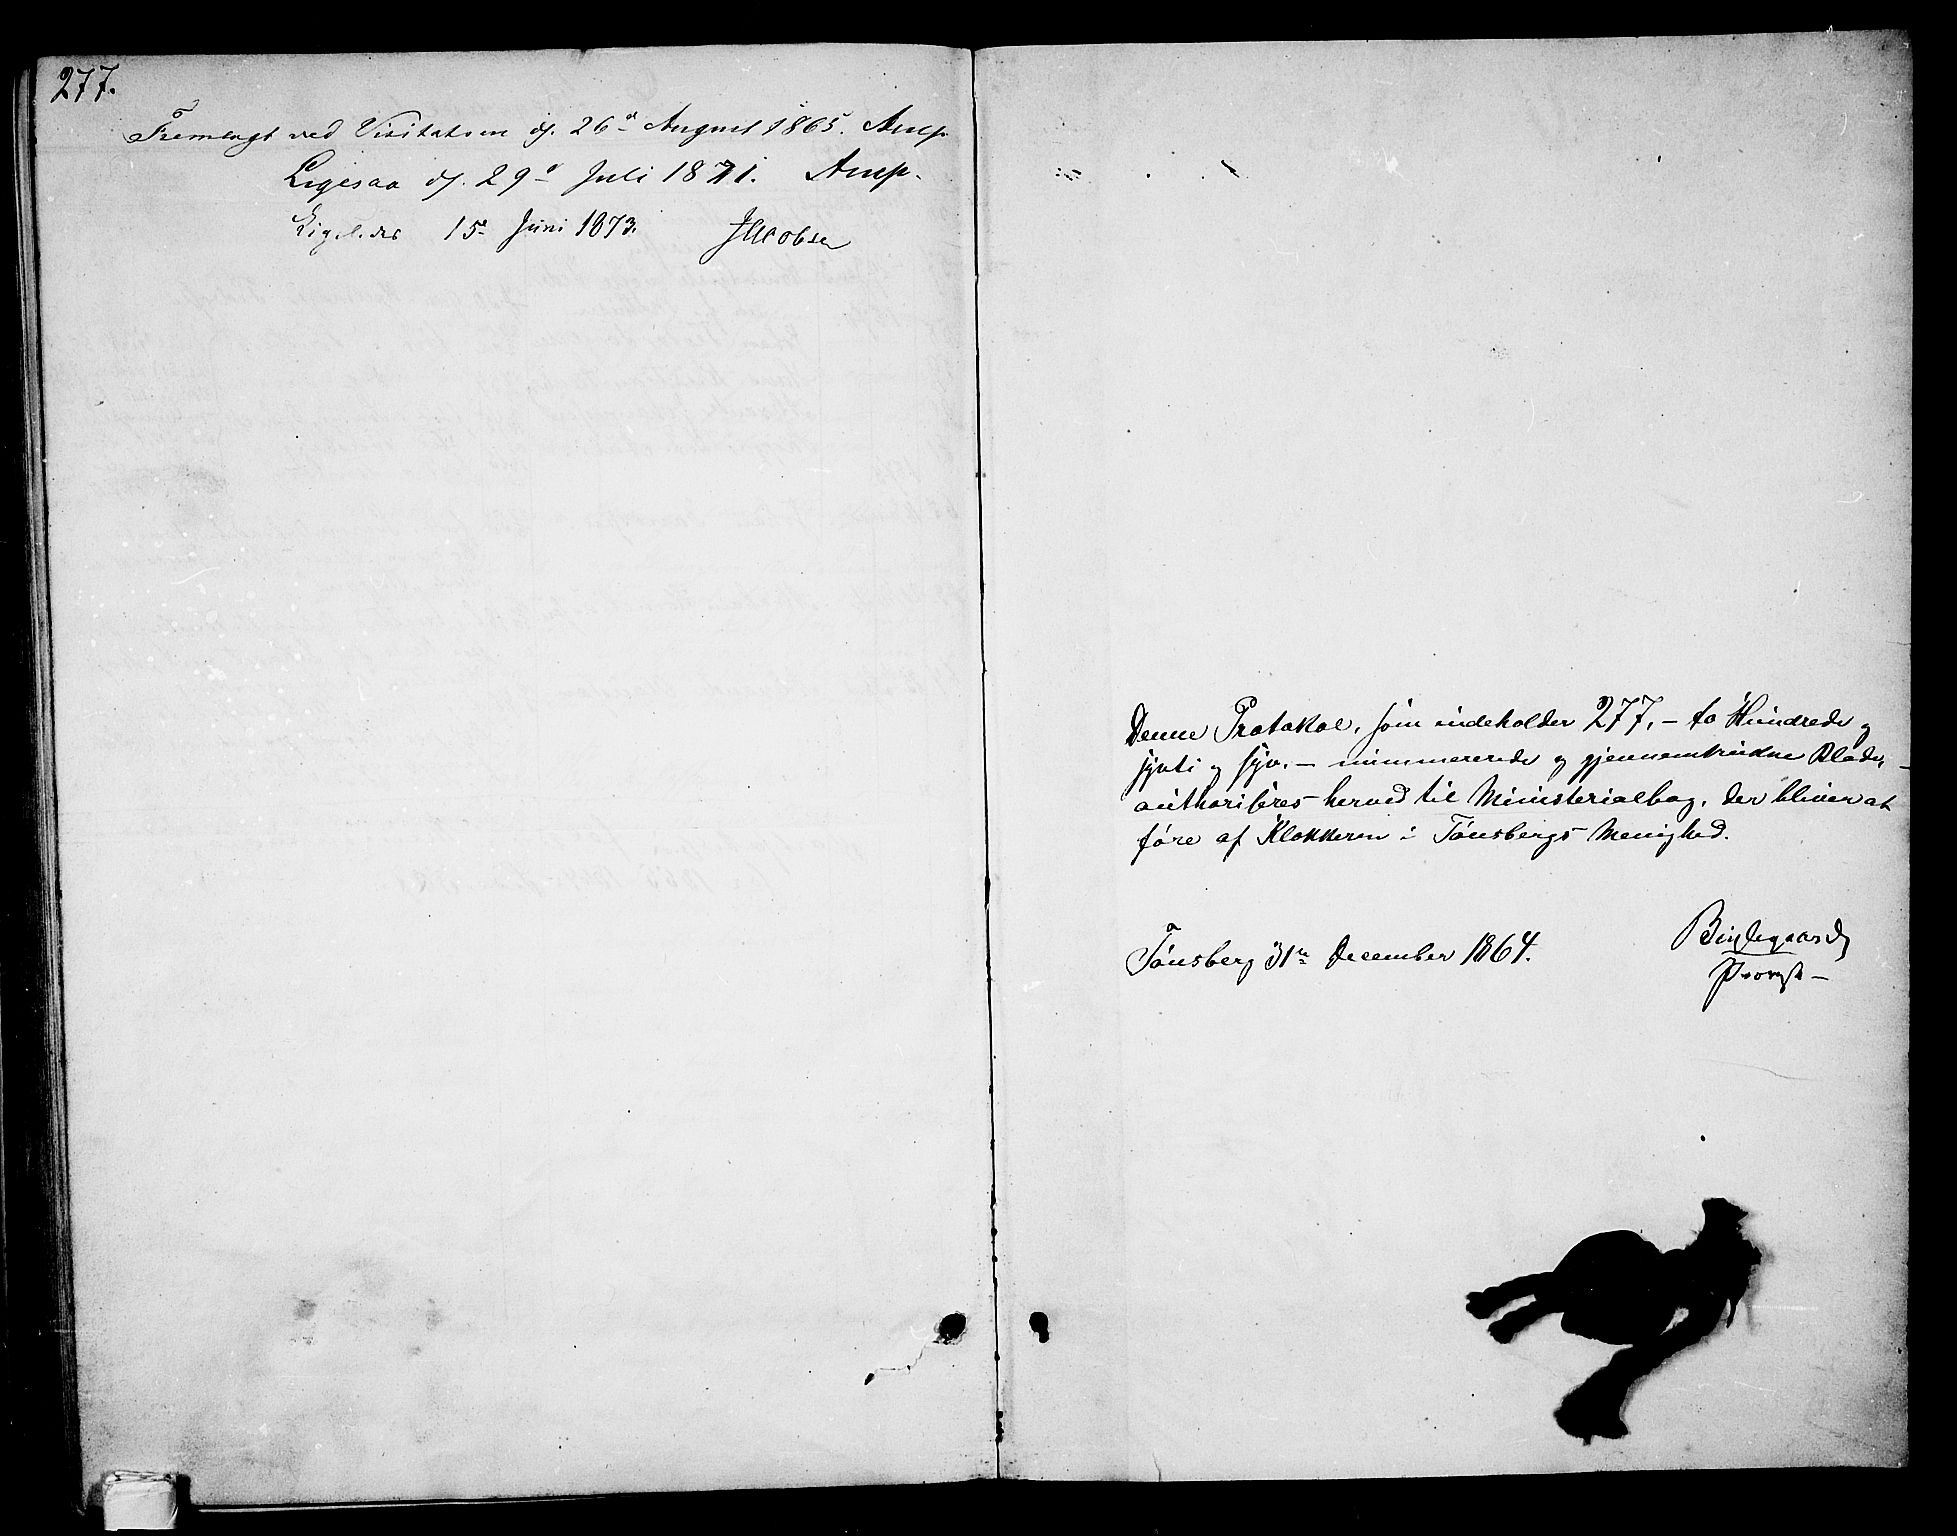 277.
Fremlagt ved Visitatsen d. 26d August 1865. Arup
Ligesaa d. 29d Juli 1871. Arup.
Ligeledes 15de Juni 1873. JJacobsen
Denne Protokol, som indeholder 277, – to Hundrede og
sytti og syv, – nummererede og gjennemtrukne Blade, –
authoriseres herved til Ministerialbog, der bliver at
føre af Klokkeren i Tønsbergs Menighed.
Tønsberg 31te December 1864.
Bugegaard
Provst –